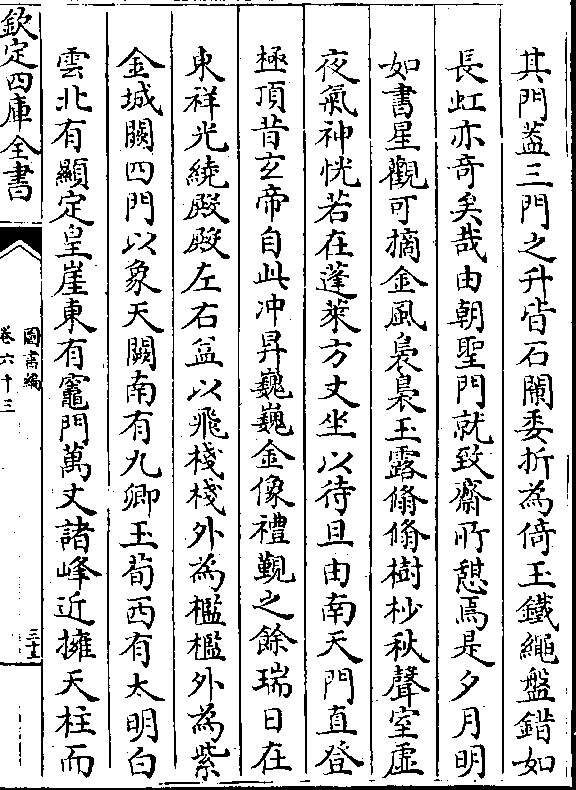 其門葢三門之升皆石闌委折為倚玉鐵繩盤錯如
長虹亦奇矣哉由朝聖門就致齋所憇焉是夕月明
如書星觀可摘金風裊裊玉露翛翛樹杪秋聲室虚
夜氣神恍若在蓬萊方丈坐以待旦由南天門直登
極頂昔玄帝自此冲昇巍巍金像禮覲之餘瑞日在
東祥光繞殿殿左右㿽以飛棧棧外為檻檻外為紫
金城闕四門以象天闕南有九卿玉荀西有太明白
雲北有顯定皇崖東有竈門萬丈諸峰近擁天柱而
欽定四庫全書
圖書編
卷六十三
三十二